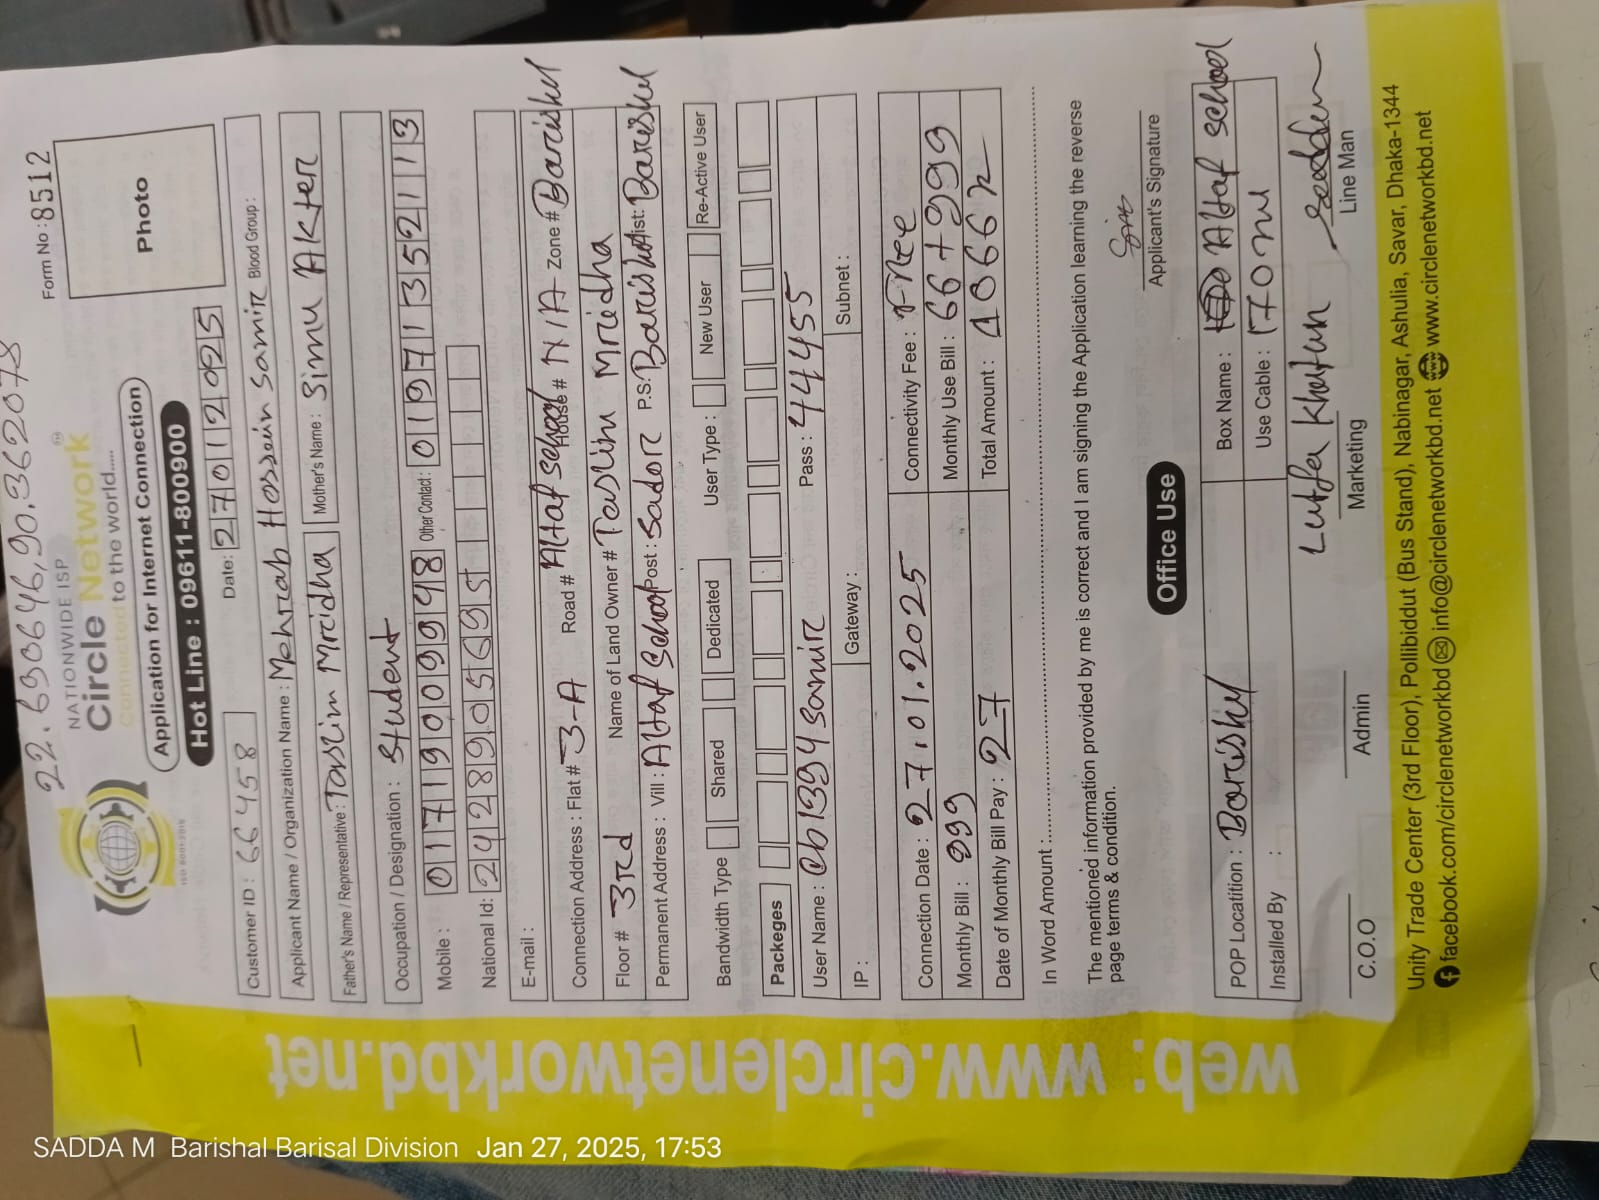 22.690646,90.362078
Form No : 8512
NATIONWIDE ISP
Circle Network TM
Connected to the world......
ISO 9001:2015
Application for Internet Connection
Hot Line : 09611-800900
Photo
Customer ID : 66458
Date: 27012025
Applicant Name / Organization Name : Mehrab Hossein Samir Blood Group :
Father's Name / Representative : Taslim Mridha Mother's Name : Simu Akter
Occupation / Designation : Student
Mobile : 01719009948 Other Contact : 01971352113
National Id: 2428905695
E-mail :
Connection Address : Flat # 3-A Road # Altaf school House # N/A Zone # Barishal
Floor # 3rd Name of Land Owner # Taslim Mridha
Permanent Address : Vill : Altaf School Post : Sador P.S: Barishal Dist: Barishal
Bandwidth Type Shared Dedicated User Type : New User Re-Active User
Packeges
User Name : cb1394samir Pass : 44455
IP : Gateway : Subnet :
Connection Date : 27.01.2025 Connectivity Fee : Free
Monthly Bill : 999 Monthly Use Bill : 66+999
Date of Monthly Bill Pay : 27 Total Amount :
In Word Amount :
The mentioned information provided by me is correct and I am signing the Application learning the reverse
page terms & condition.
Applicant's Signature
Office Use
POP Locatition : Barishal Box Name : Altaf school
Installed By : Use Cable : 170m
Lutfa Khatun Saddam
C.O.O Admin Marketing Line Man
Unity Trade Center (3rd Floor), Pollibiddut (Bus Stand), Nabinagar, Ashulia, Savar, Dhaka-1344
facebook.com/circlenetworkbd info@circlenetworkbd.net www www.circlenetworkbd.net
web: www.circlenetworkbd.net
SADDA M Barishal Barisal Division Jan 27, 2025, 17:53